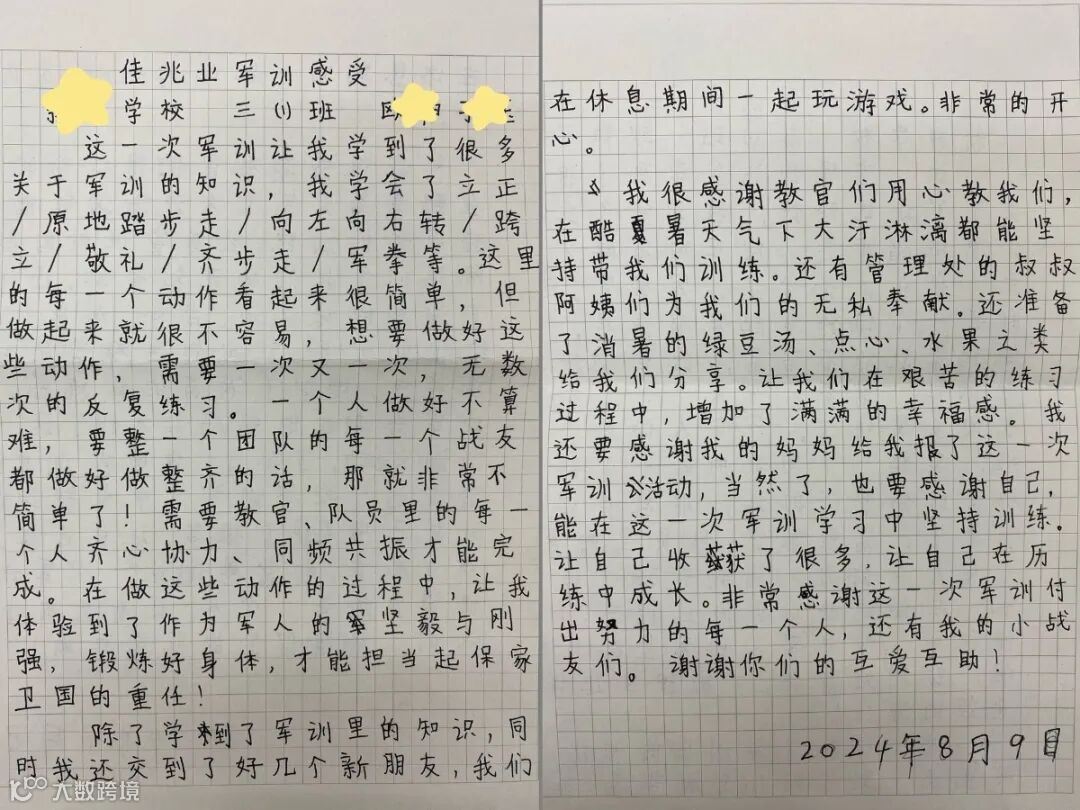 佳兆业军训感受
学校 三(1)班 欧
这一次军训让我学到了很多
关于军训的知识，我学会了立正
/原地踏步走/向左向右转/跨
立/敬礼/齐步走/军拳等。这里
的每一个动作看起来很简单，但
做起来就很不容易，想要做好这
些动作，需要一次又一次，无数
次的反复练习。一个人做好不算
难，要整一个团队的每一个战友
都做好做整齐的话，那就非常不
简单了！需要教官、队员里的每一
个人齐心协力、同频共振才能完
成。在做这些动作的过程中，让我
体验到了作为军人的坚毅与刚
强，锻炼好身体，才能担当起保家
卫国的重任！
除了学到了军训里的知识，同
时我还交到了好几个新朋友，我们
在休息期间一起玩游戏。非常的开
心。
我很感谢教官们用心教我们，
在酷暑天气下大汗淋漓都能坚
持带我们训练。还有管理处的叔叔
阿姨们为我们的无私奉献。还准备
了消暑的绿豆汤、点心、水果之类
给我们分享。让我们在艰苦的练习
过程中，增加了满满的幸福感。我
还要感谢我的妈妈给我报了这一次
军训活动，当然了，也要感谢自己，
能在这一次军训学习中坚持训练。
让自己收获了很多，让自己在历
练中成长。非常感谢这一次军训付
出努力的每一个人，还有我的小战
友们。谢谢你们的互爱互助！
2024年8月9日
大数跨境